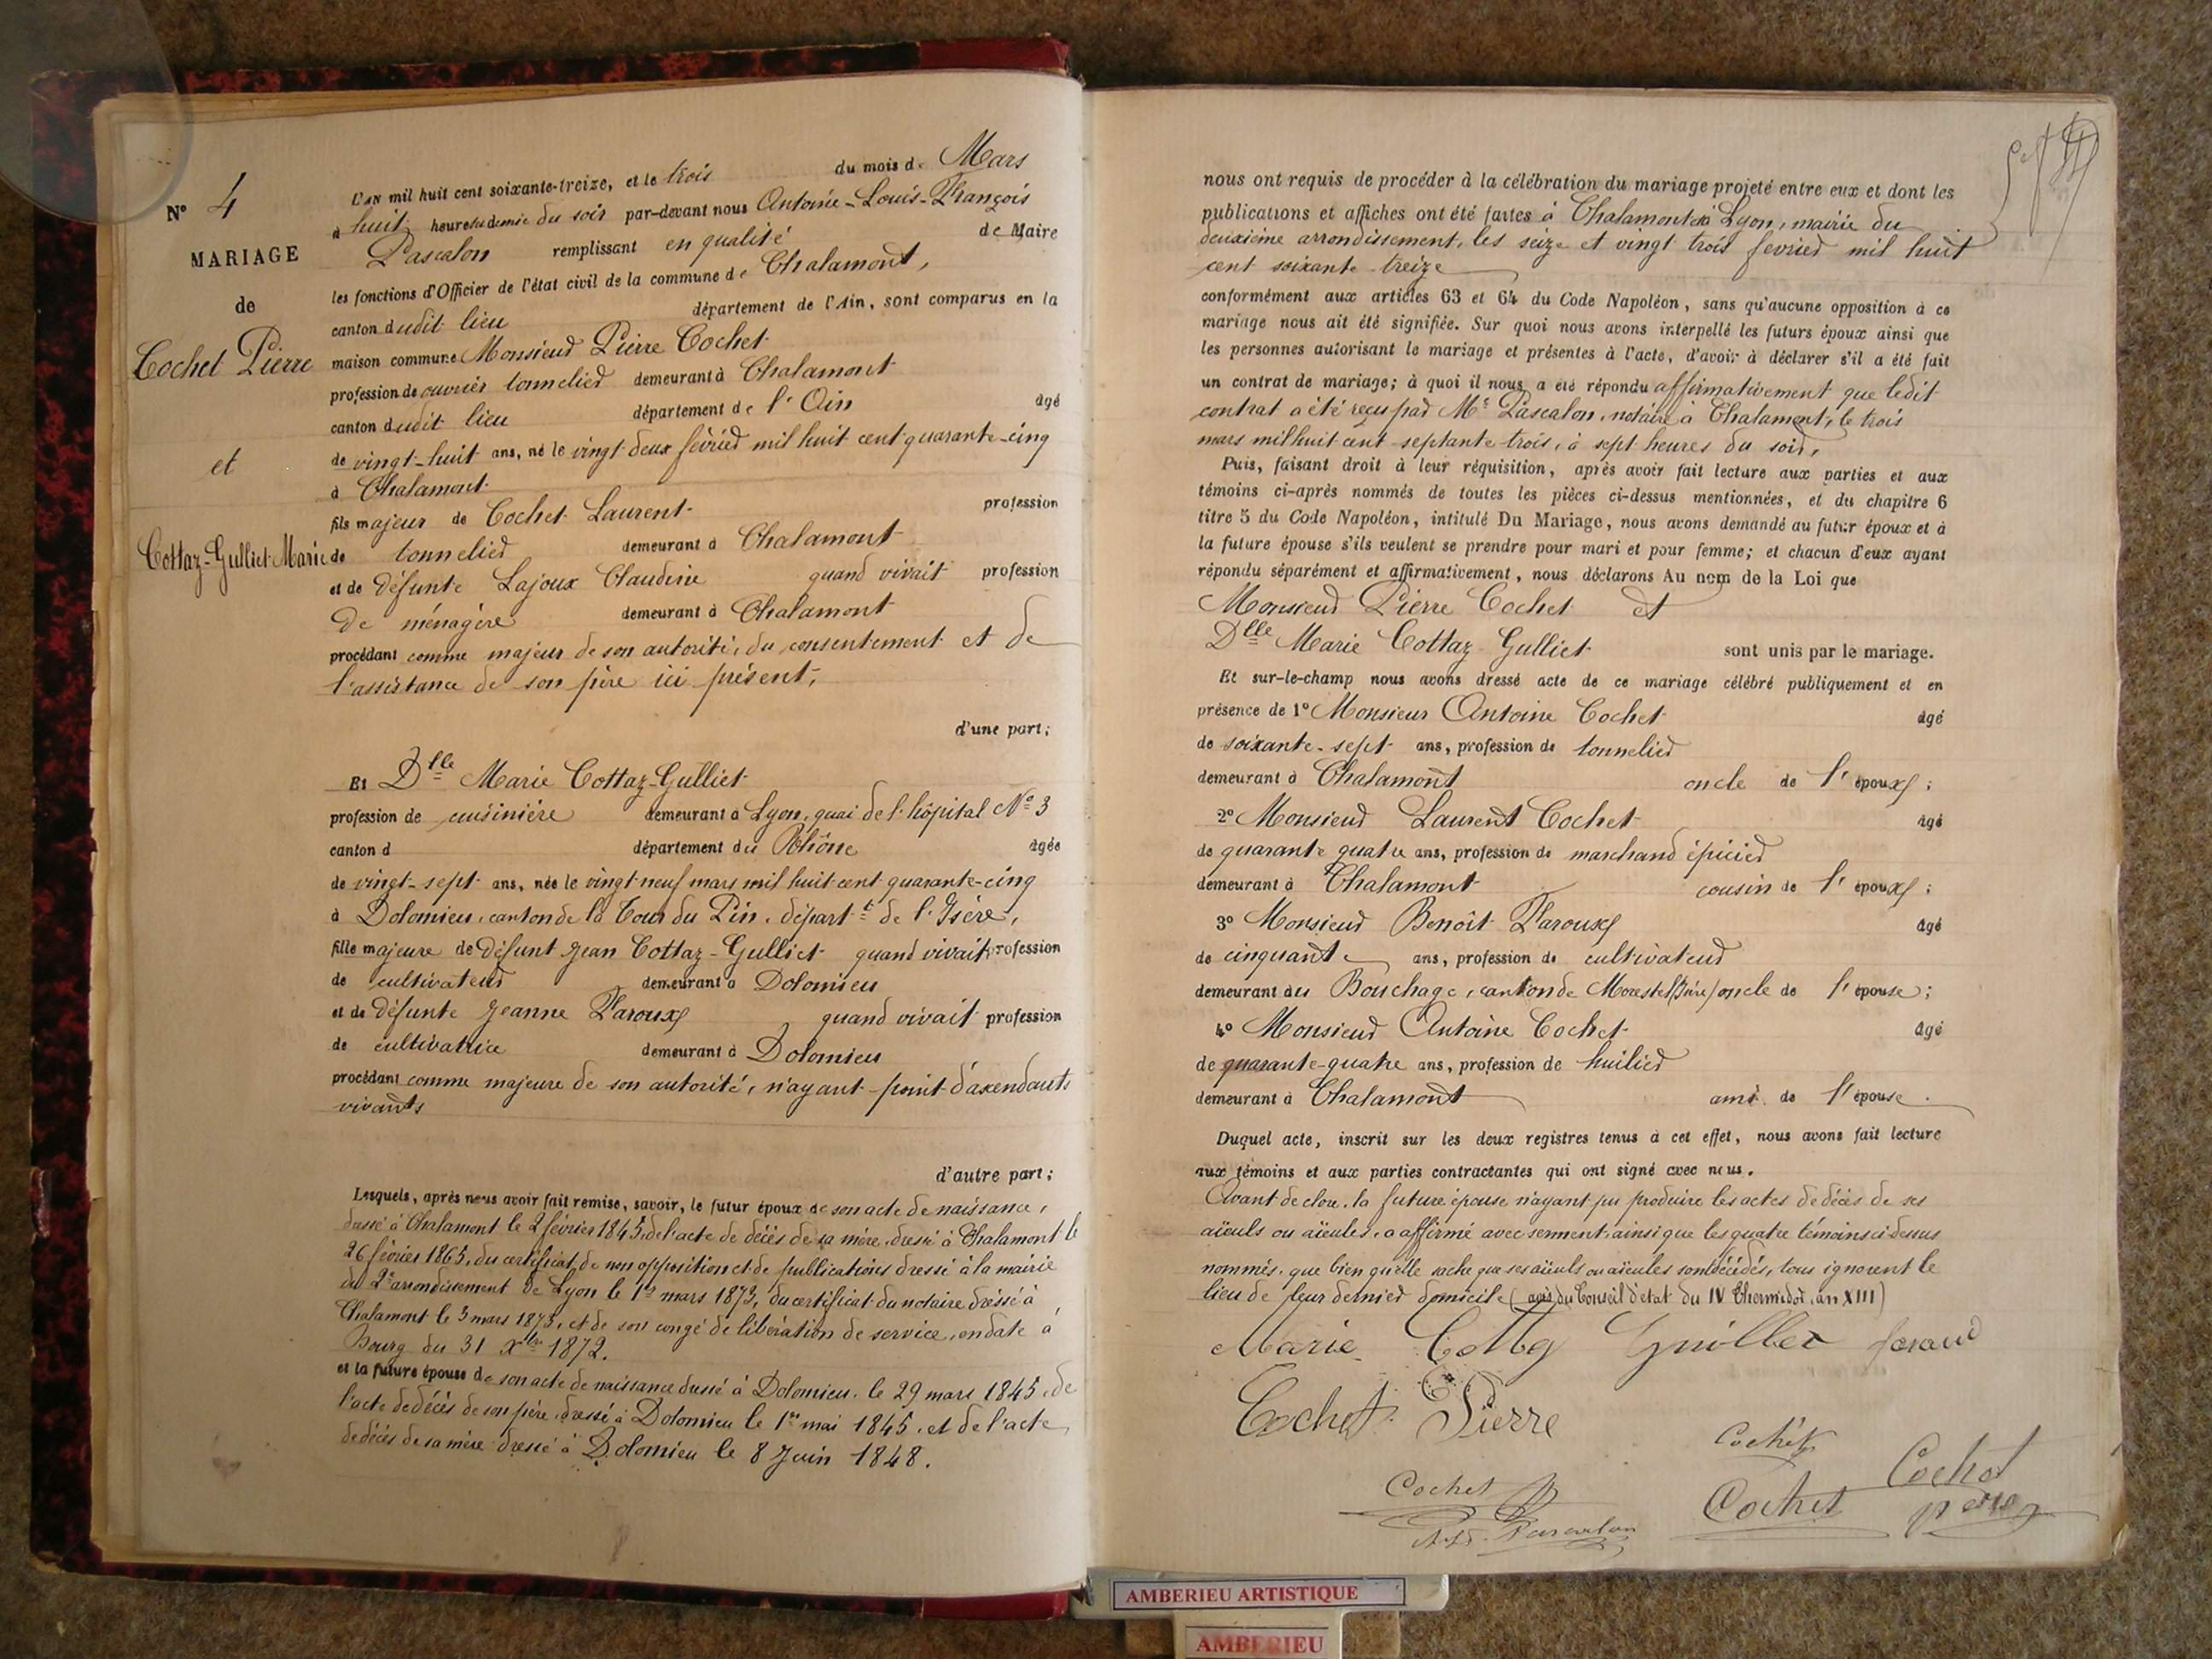 N° 4
MARIAGE
de
Cochet Pierre
et
Cottaz-Gulliet Marie
L'AN mil huit cent soixante-treize, et le trois du mois de Mars
à huit heures et demie du soir par-devant nous Antoine-Louis-François
Pascalon remplissant en qualité de Maire
les fonctions d'Officier de l'état civil de la commune de Chalamont,
canton dudit lieu département de l'Ain, sont comparus en la
maison commune Monsieur Pierre Cochet
profession de ouvrier tonnelier demeurant à Chalamont
canton dudit lieu département de l'Ain âgé
de vingt-huit ans, né le vingt deux février mil huit cent quarante-cinq
à Chalamont
fils majeur de Cochet Laurent profession
de tonnelier demeurant à Chalamont
et de défunte Lajoux Claudine quand vivait profession
de ménagère demeurant à Chalamont
procédant comme majeur de son autorité, du consentement et de
l'assistance de son père ici présent,
d'une part;
Et Dlle Marie Cottaz-Gulliet
profession de cuisinière demeurant à Lyon, quai de l'hôpital N° 3
canton d département du Rhône âgée
de vingt-sept ans, née le vingt neuf mars mil huit cent quarante-cinq
à Dolomieu, canton de la Tour du Pin, départt de l'Isère,
fille majeure de défunt Jean Cottaz-Gulliet quand vivait profession
de cultivateur demeurant à Dolomieu
et de défunte Jeanne Paroux quand vivait profession
de cultivatrice demeurant à Dolomieu
procédant comme majeure de son autorité, n'ayant point d'axendants
vivants
d'autre part;
Lesquels, après nous avoir fait remise, savoir, le futur époux de son acte de naissance,
dressé à Chalamont le 2 février 1845, de l'acte de décès de sa mère, dressé à Chalamont le
26 février 1865, du certificat de non opposition et de publications dressé à la mairie
du 2e arrondissement de Lyon le 1er mars 1873, du certificat du notaire dressé à
Chalamont le 3 mars 1873, et de son congé de libération de service, en date à
Bourg du 31 Xbre 1872.
et la future épouse de son acte de naissance dressé à Dolomieu, le 29 mars 1845, de
l'acte de décès de son père, dressé à Dolomieu le 1er mai 1845, et de l'acte
de décès de sa mère dressé à Dolomieu le 8 Juin 1848.
nous ont requis de procéder à la célébration du mariage projeté entre eux et dont les
publications et affiches ont été faites à Chalamont et à Lyon, mairie du
deuxième arrondissement, les seize et vingt trois février mil huit
cent soixante-treize
conformément aux articles 63 et 64 du Code Napoléon, sans qu'aucune opposition à ce
mariage nous ait été signifiée. Sur quoi nous avons interpellé les futurs époux ainsi que
les personnes autorisant le mariage et présentes à l'acte, d'avoir à déclarer s'il a été fait
un contrat de mariage; à quoi il nous a été répondu affirmativement que ledit
contrat a été reçu par Me Pascalon, notaire à Chalamont, le trois
mars mil huit cent septante-trois, à sept heures du soir,
Puis, faisant droit à leur réquisition, après avoir fait lecture aux parties et aux
témoins ci-après nommés de toutes les pièces ci-dessus mentionnées, et du chapitre 6
titre 5 du Code Napoléon, intitulé Du Mariage, nous avons demandé au futur époux et à
la future épouse s'ils veulent se prendre pour mari et pour femme; et chacun d'eux ayant
répondu séparément et affirmativement, nous déclarons Au nom de la Loi que
Monsieur Pierre Cochet et
Dlle Marie Cottaz Gulliet sont unis par le mariage.
Et sur-le-champ nous avons dressé acte de ce mariage célébré publiquement et en
présence de 1° Monsieur Antoine Cochet âgé
de soixante-sept ans, profession de tonnelier
demeurant à Chalamont oncle de l'époux;
2° Monsieur Laurent Cochet âgé
de quarante quatre ans, profession de marchand épicier
demeurant à Chalamont cousin de l'époux;
3° Monsieur Benoît Paroux âgé
de cinquante ans, profession de cultivateur
demeurant au Bouchage, canton de Morestel (Isère) oncle de l'épouse;
4° Monsieur Antoine Cochet âgé
de quarante-quatre ans, profession de huilier
demeurant à Chalamont ami de l'épouse.
Duquel acte, inscrit sur les deux registres tenus à cet effet, nous avons fait lecture
aux témoins et aux parties contractantes qui ont signé avec nous.
Avant de clore, la future épouse n'ayant pu produire les actes de décès de ses
aïeuls ou aïeules, a affirmé avec serment, ainsi que les quatre témoins ci-dessus
nommés, que bien qu'elle sache que ses aïeuls ou aïeules sont décédés, tous ignorent le
lieu de leur dernier domicile (avis du Conseil d'état du IV Thermidor, an XIII)
Marie Guillet
Cochet Pierre
Cochet
Cochet
Cochet
Cochet
Pascalon
AMBERIEU ARTISTIQUE
AMBERIEU